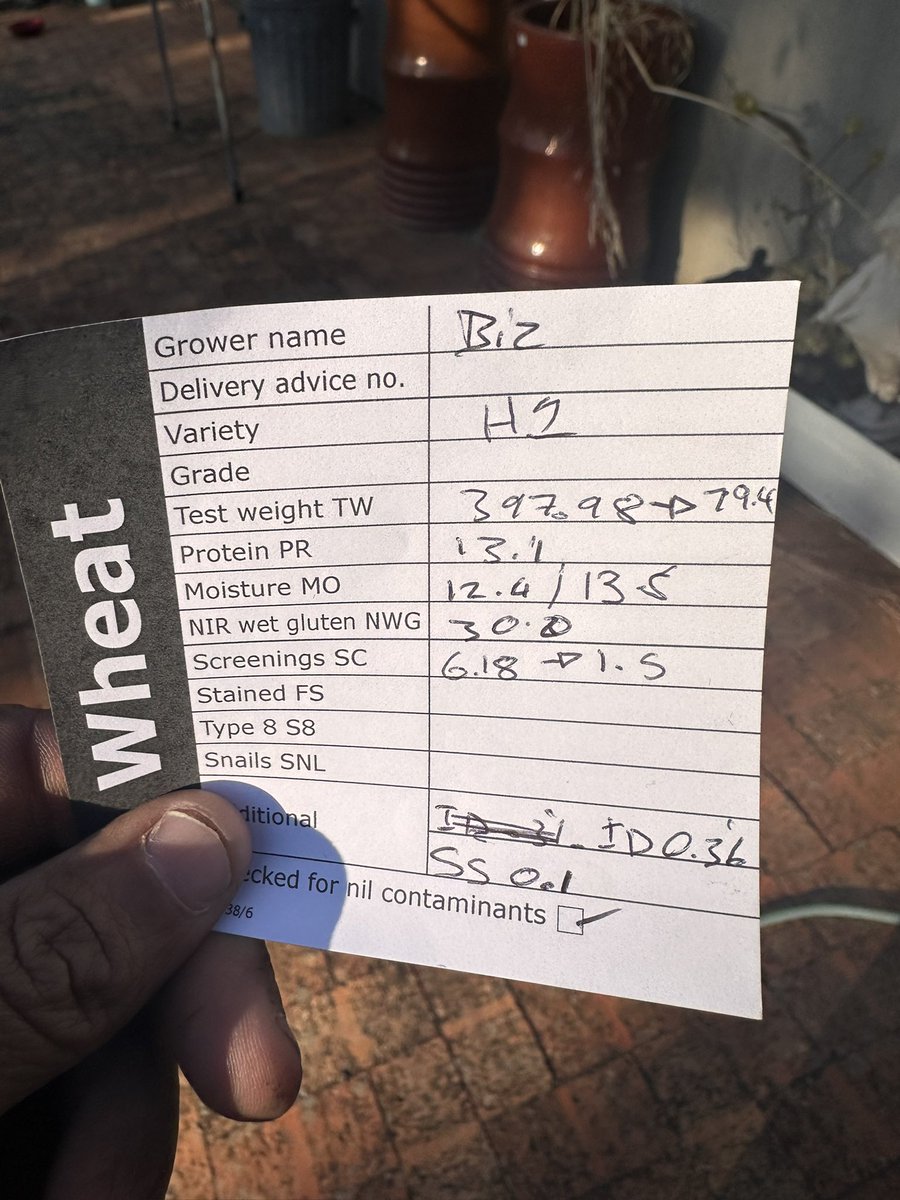 Wheat
Grower name Biz
Delivery advice no.
Variety H2
Grade
Test weight TW 397.98 → 79.4
Protein PR 13.1
Moisture MO 12.4 / 13.5
NIR wet gluten NWG 30.0
Screenings SC 6.18 → 1.5
Stained FS
Type 8 S8
Snails SNL
ditional ID 0.36
SS 0.1
ecked for nil contaminants
38/6